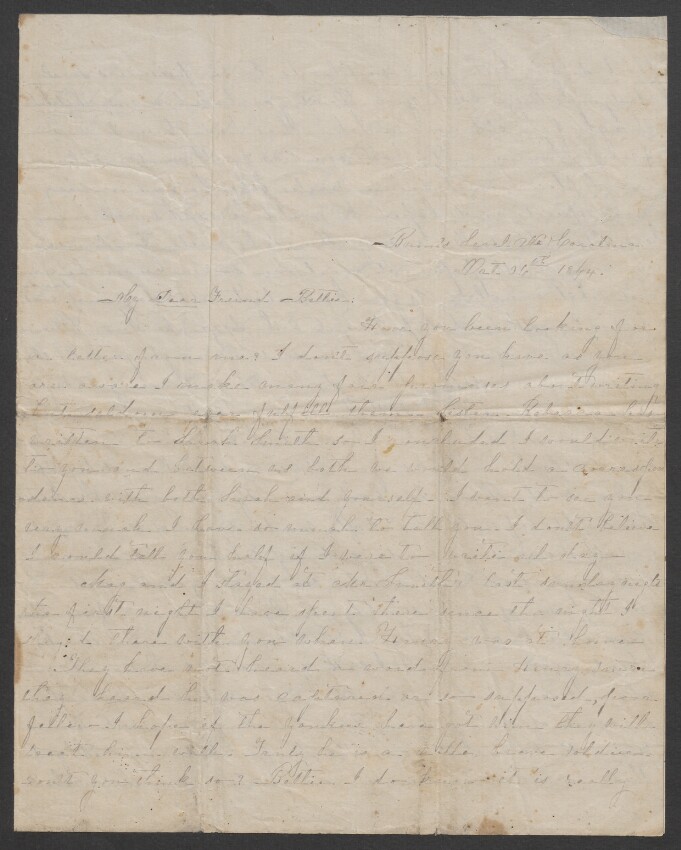 Oct. 31st 1864.
My Dear Friend Bettie:
Have you been looking for
a letter from me? I don't suppose you have as you
are aware I make many fair promises about writing
but seldom ever fulfill them. Sister Rebecca has
written to Sarah so I concluded I would write
to you and between us both we would hold a correspon
dence with both Sarah and yourself. I want to see you
very much I have so much to tell you I don't believe
I could tell you half if I were to write all day.
Mag and I stayed at Mr Smith's last sunday night
the first night I have spent there since the night I
stayed there with you when Henry was at Home
They have not heard a word from Henry since
they heard he was captured or so supposed, poor
fellow I hope if the yankees have got him they will
treat him well. Truly he is a noble brave soldier
don't you think so? Bettie I do know it is really